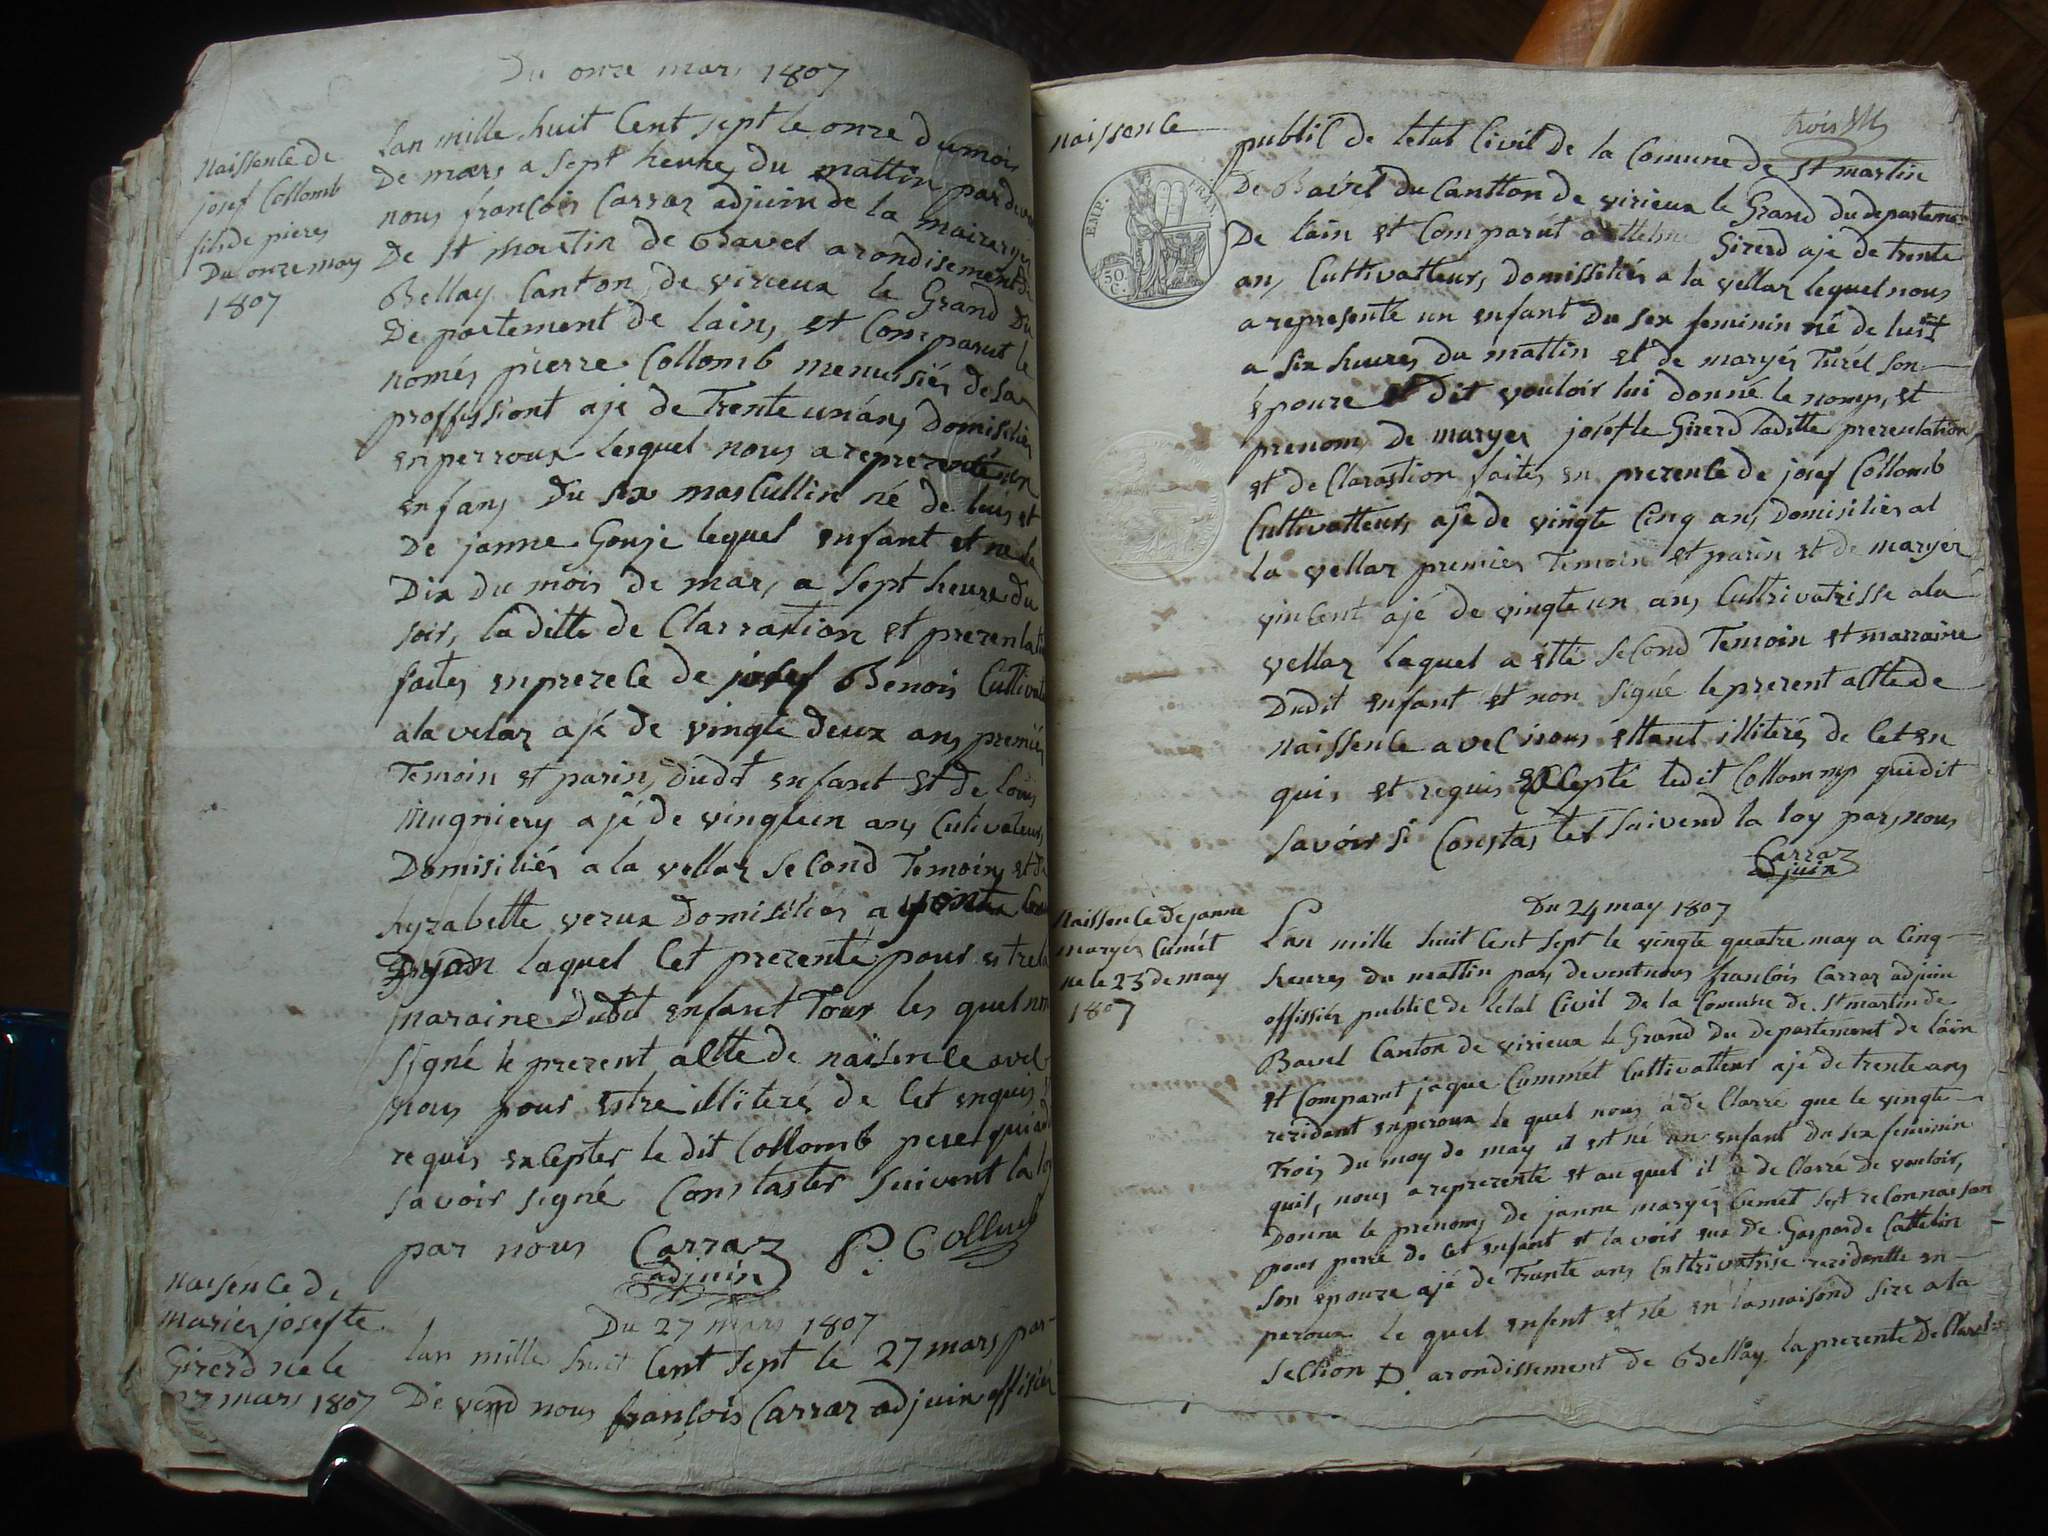 Du onze mars 1807
Naissence de
josef Collomb
fils de pieres
Du onze may
1807
Lan mille huit Cent sept le onze du mois
De mars a sept heure du mattin par devan
nous francois Carraz adjuin de la maireryé
De St martin de Bavel arondisement de
Bellay Canton de virieux le Grand Du
De partement de lain, et Comparut le
només pierre Collomb menussiés de sa
proffissiont ajé de Trente un ans Domisiliés
en perroux lesquel nous a reprezenté un
enfans Du sex masCullin né de luis et
De janne Gouje lequel enfant et né le
Dix Du mois de mars a sept heure du
soir, la ditte de Clarrastion et prezentati
faites en prezele de josef Benois Cultivat
a la velaz ajé de vingte deux ans premiés
Temoin et parin, dudit enfant et de louis
Mugniery ajé de vingtun ans Cultivateur
Domisiliés a la vellaz seCond Temoin et de
hyzabette verux Domisiliés a
laquel Cet prezenté pour estre la
maraine Dudit enfant Tous les quel non
signé le prezent actte de naisence avec
nous pour estre illiteré de Cet enquis et
requis exCepter le dit Collomb pere qui a dit
savoir signé Constaster suivent la loy
par nous Carraz P. Collunb
adjuin
naisence de
mariés josefte
Girerd ne le
27 mars 1807
Du 27 mars 1807
lan mille huit Cent sept le 27 mars par
De vend nous françois Carraz adjuin offisiés
naissence
trois
EMP. FRAN.
50 C.
public de letat Civil de la Comune de St martin
De Bavel du Cantton de virieux le Grand du departeme
De lain et Comparut anttelme Girerd ajé de trente
ans Cultivatteurs domissiliés a la vellaz lequel nous
a represente un enfant du sex feminin né de luis
a six heures du mattin et de maryés Turél son
épouze et dit vouloir lui donné le nomp, et
prenoms de maryes joséfte Girerd ladite prezentation
et de Clarastion faites en prezence de josef Collomb
Cultivatteurs ajé de vingte Cinq ans Domisiliés al
la vellaz premies Temoin et parin et de maryés
vincent ajé de vingte un ans Cultrivatrisse a la
vellaz laquel a etté seCond Temoin et marraine
Dudit enfant et non signé le prezent actte de
naissence avec nous ettant illiterés de Cet en
quis et requis exCepté ledit Collommp qui dit
savoir si Constastes suivend la loy par, nous
Carraz
adjuin
Du 24 may 1807
Naissencé de janne
maryés Cumét
ne le 23 de may
1807
Lan mille huit Cent sept le vingte quatre may a Cinq
heures du mattin par, devent nous françois Carraz adjuin
offissiér public de letat Civil De la Comune de St martin de
Bavel Canton de virieux le Grand Du Departement de lain
et Comparut jaque Cummét Cultivatteur ajé de trente ans
rezidant enperoux le quel nous à de Clarré que le vingte
Trois du moy de may il est né un enfant du sex feminin
quil, nous a reprezenté et au quel il a de Clarré de vouloir,
Donne le prenoms de janne maryés Cumet sest reConnaisan
pour peré de Cet enfant et lavoir eux de Gasparde Cattelin
son epouze ajé de Trante ans Cultrivatrise rezidentte en
peroux le quel enfent et né en la maisond size a la
seCtion D. arondissement de Bellay la prezente DeClarati